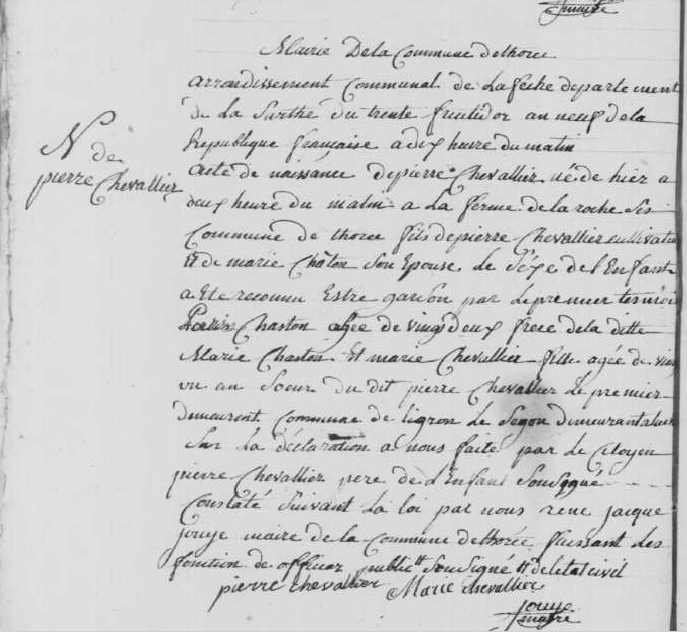 maire
Mairie De la Commune de thorée
arrondissement Communal de La fleche departement
de La Sarthe du trente fructidor an neuf de la
Republique française a dix heure du matin
N de
pierre Chevallier
acte de naissance de pierre Chevallier né de hier a
deux heure du matin a La ferme de la roche Sis
Commune de thoree fils de pierre Chevallier cultivateur
Et de marie Chaton Son Epouse Le Sexe de l'Enfant
a Eté reconnu Estre garson par Le premier temoin
Chaston agée de vingt deux frere de la ditte
Marie Chaston Et marie Chevallier fille agée de vingt
un an Soeur du dit pierre Chevallier Le premier
demeurent Commune de ligron Le Segon demeurant
Sur La déclaration a nous faite par Le Citoyen
pierre Chevallier pere de L'Enfant Sousigné
Constaté Suivant La loi par nous rene jacque
jouye maire de la Commune de thorée faissant Les
fonction de officier public Sousigné de letat civil
pierre chevallier Marie chevallier
jouye
maire